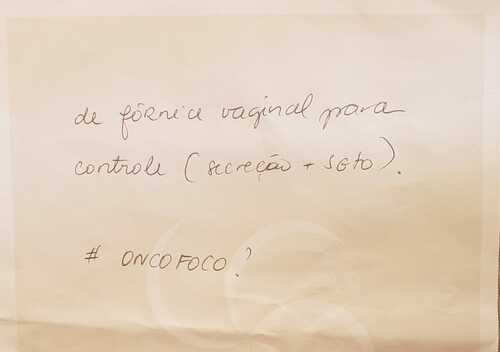 de fórnice vaginal para
controle (secreção + SGTO).
# ONCOFOCO?